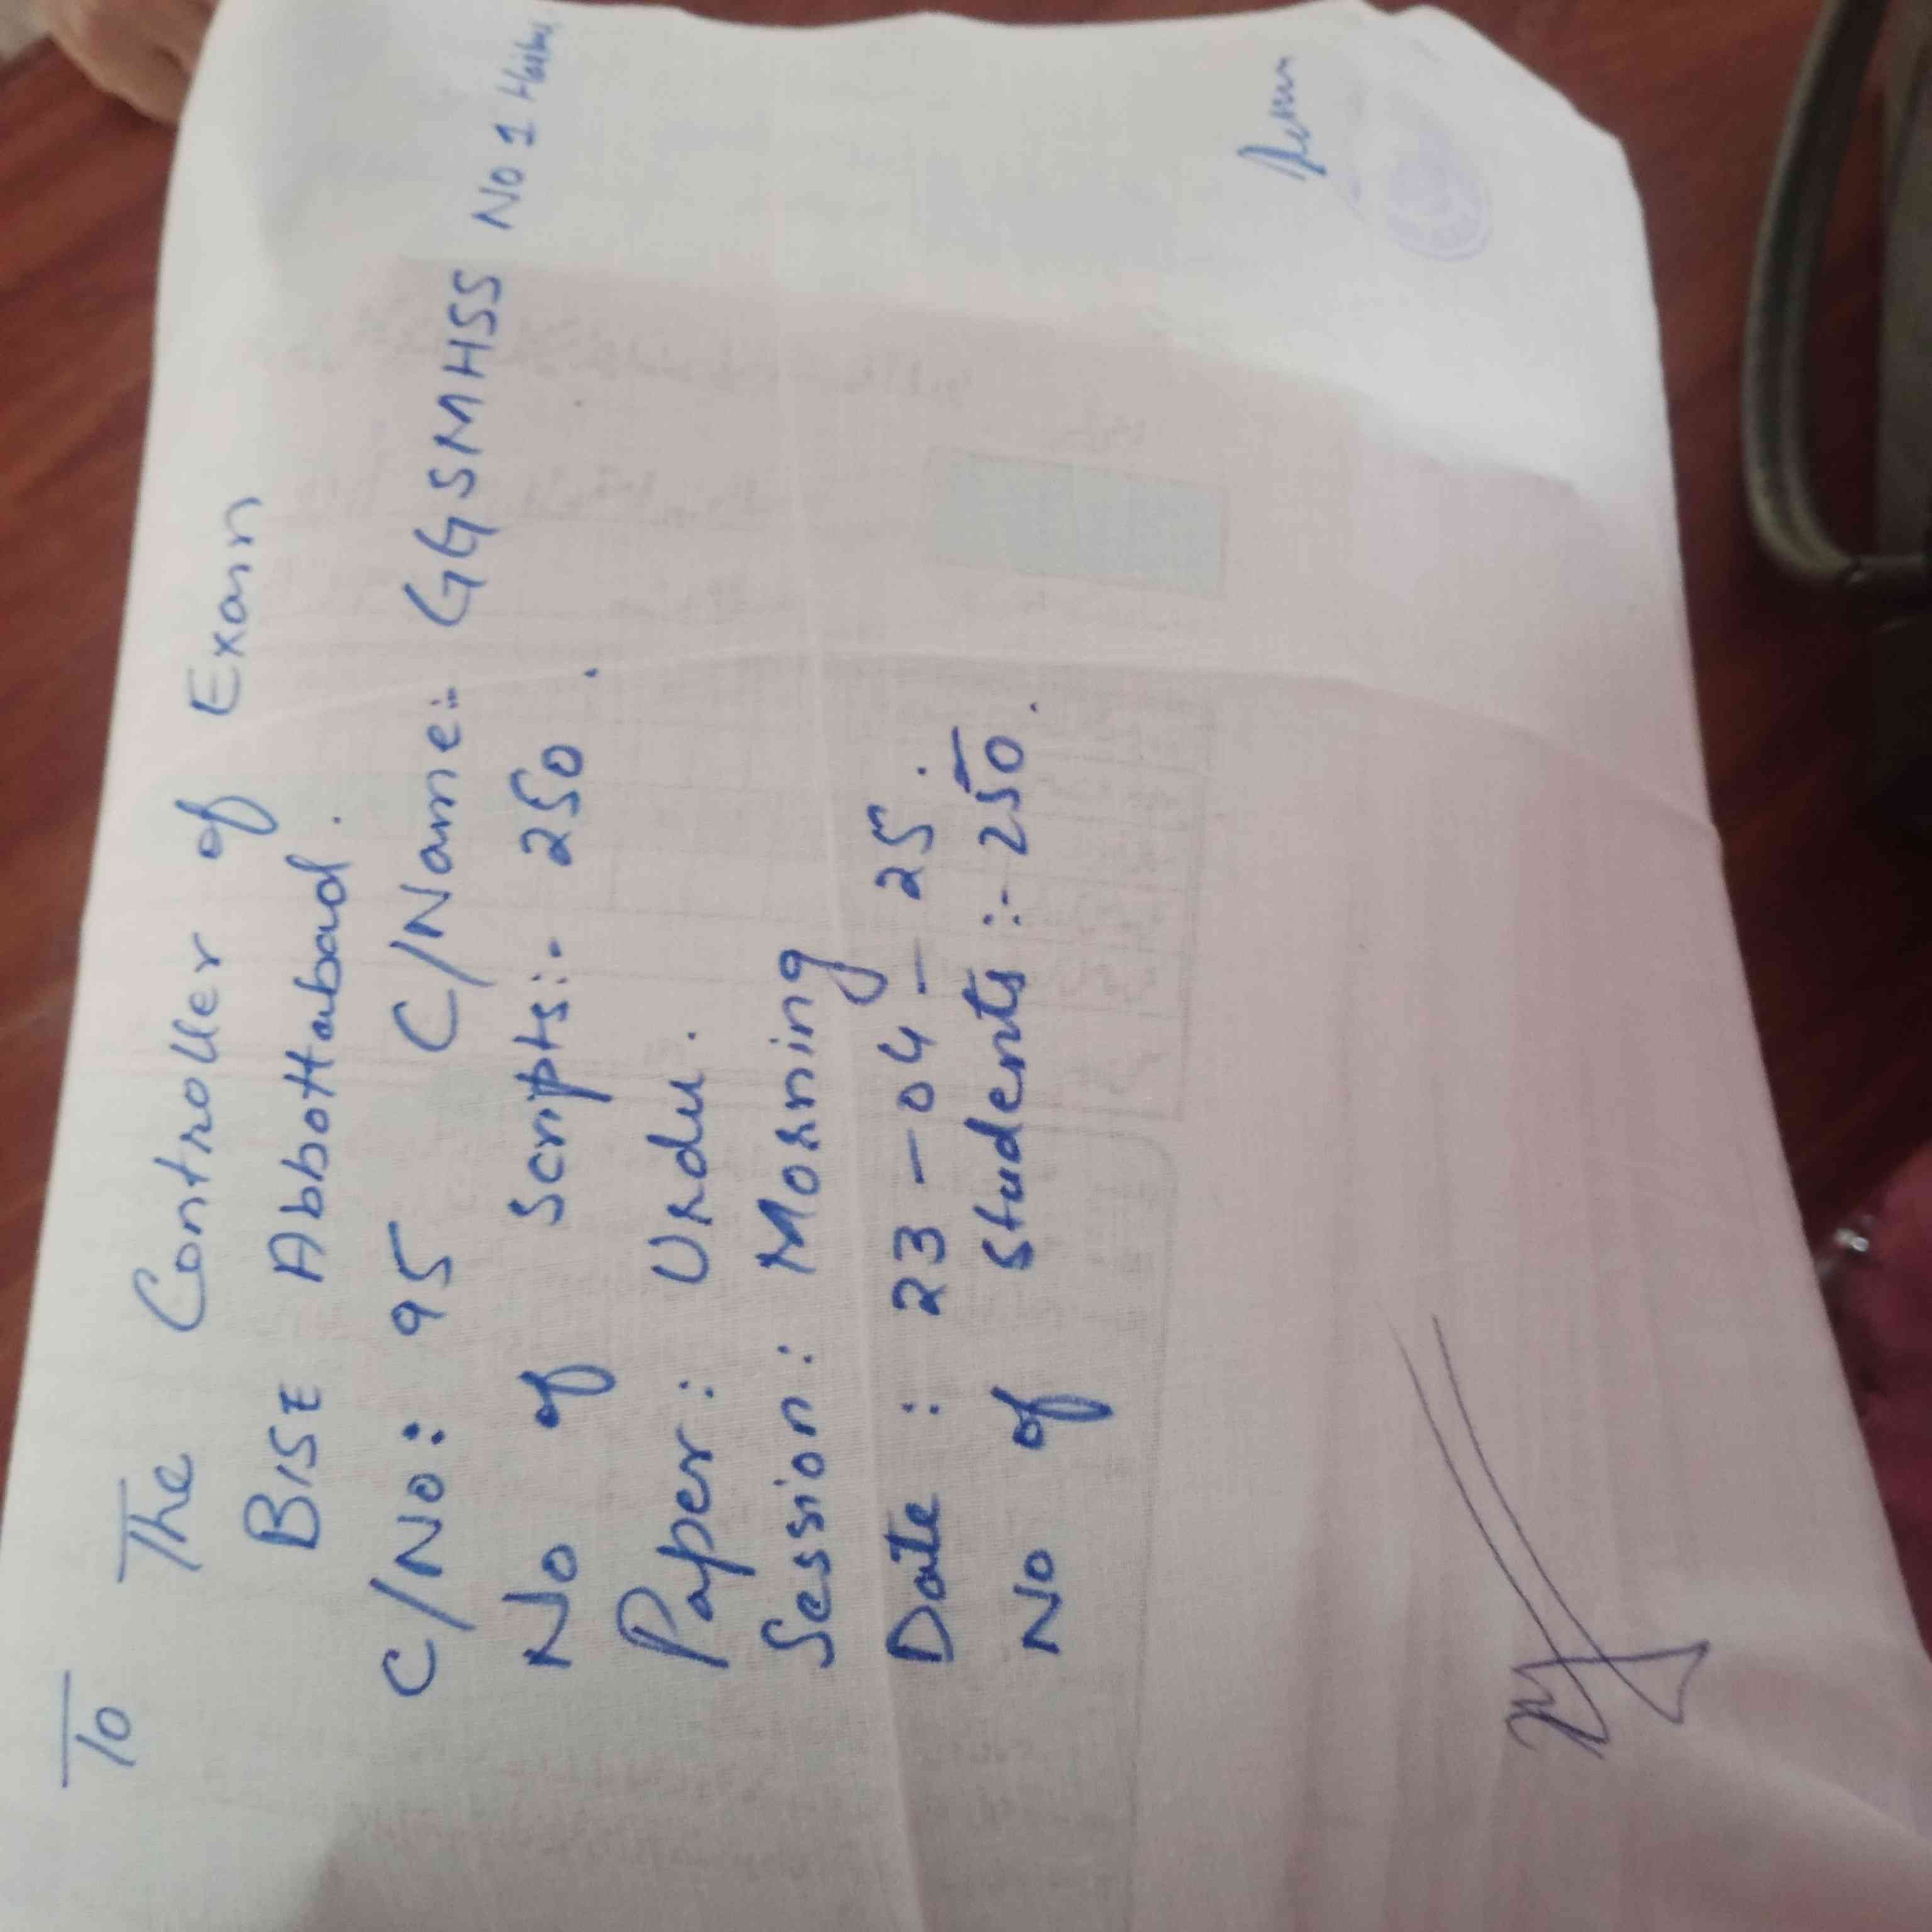 To
The Controller of Exam
BISE Abbottabad.
C/No: 95 C/Name:- GGSMHSS No 1
No of scripts:- 250.
Paper: Urdu.
Session: Morning
Date: 23-04-25.
No of students:- 250.